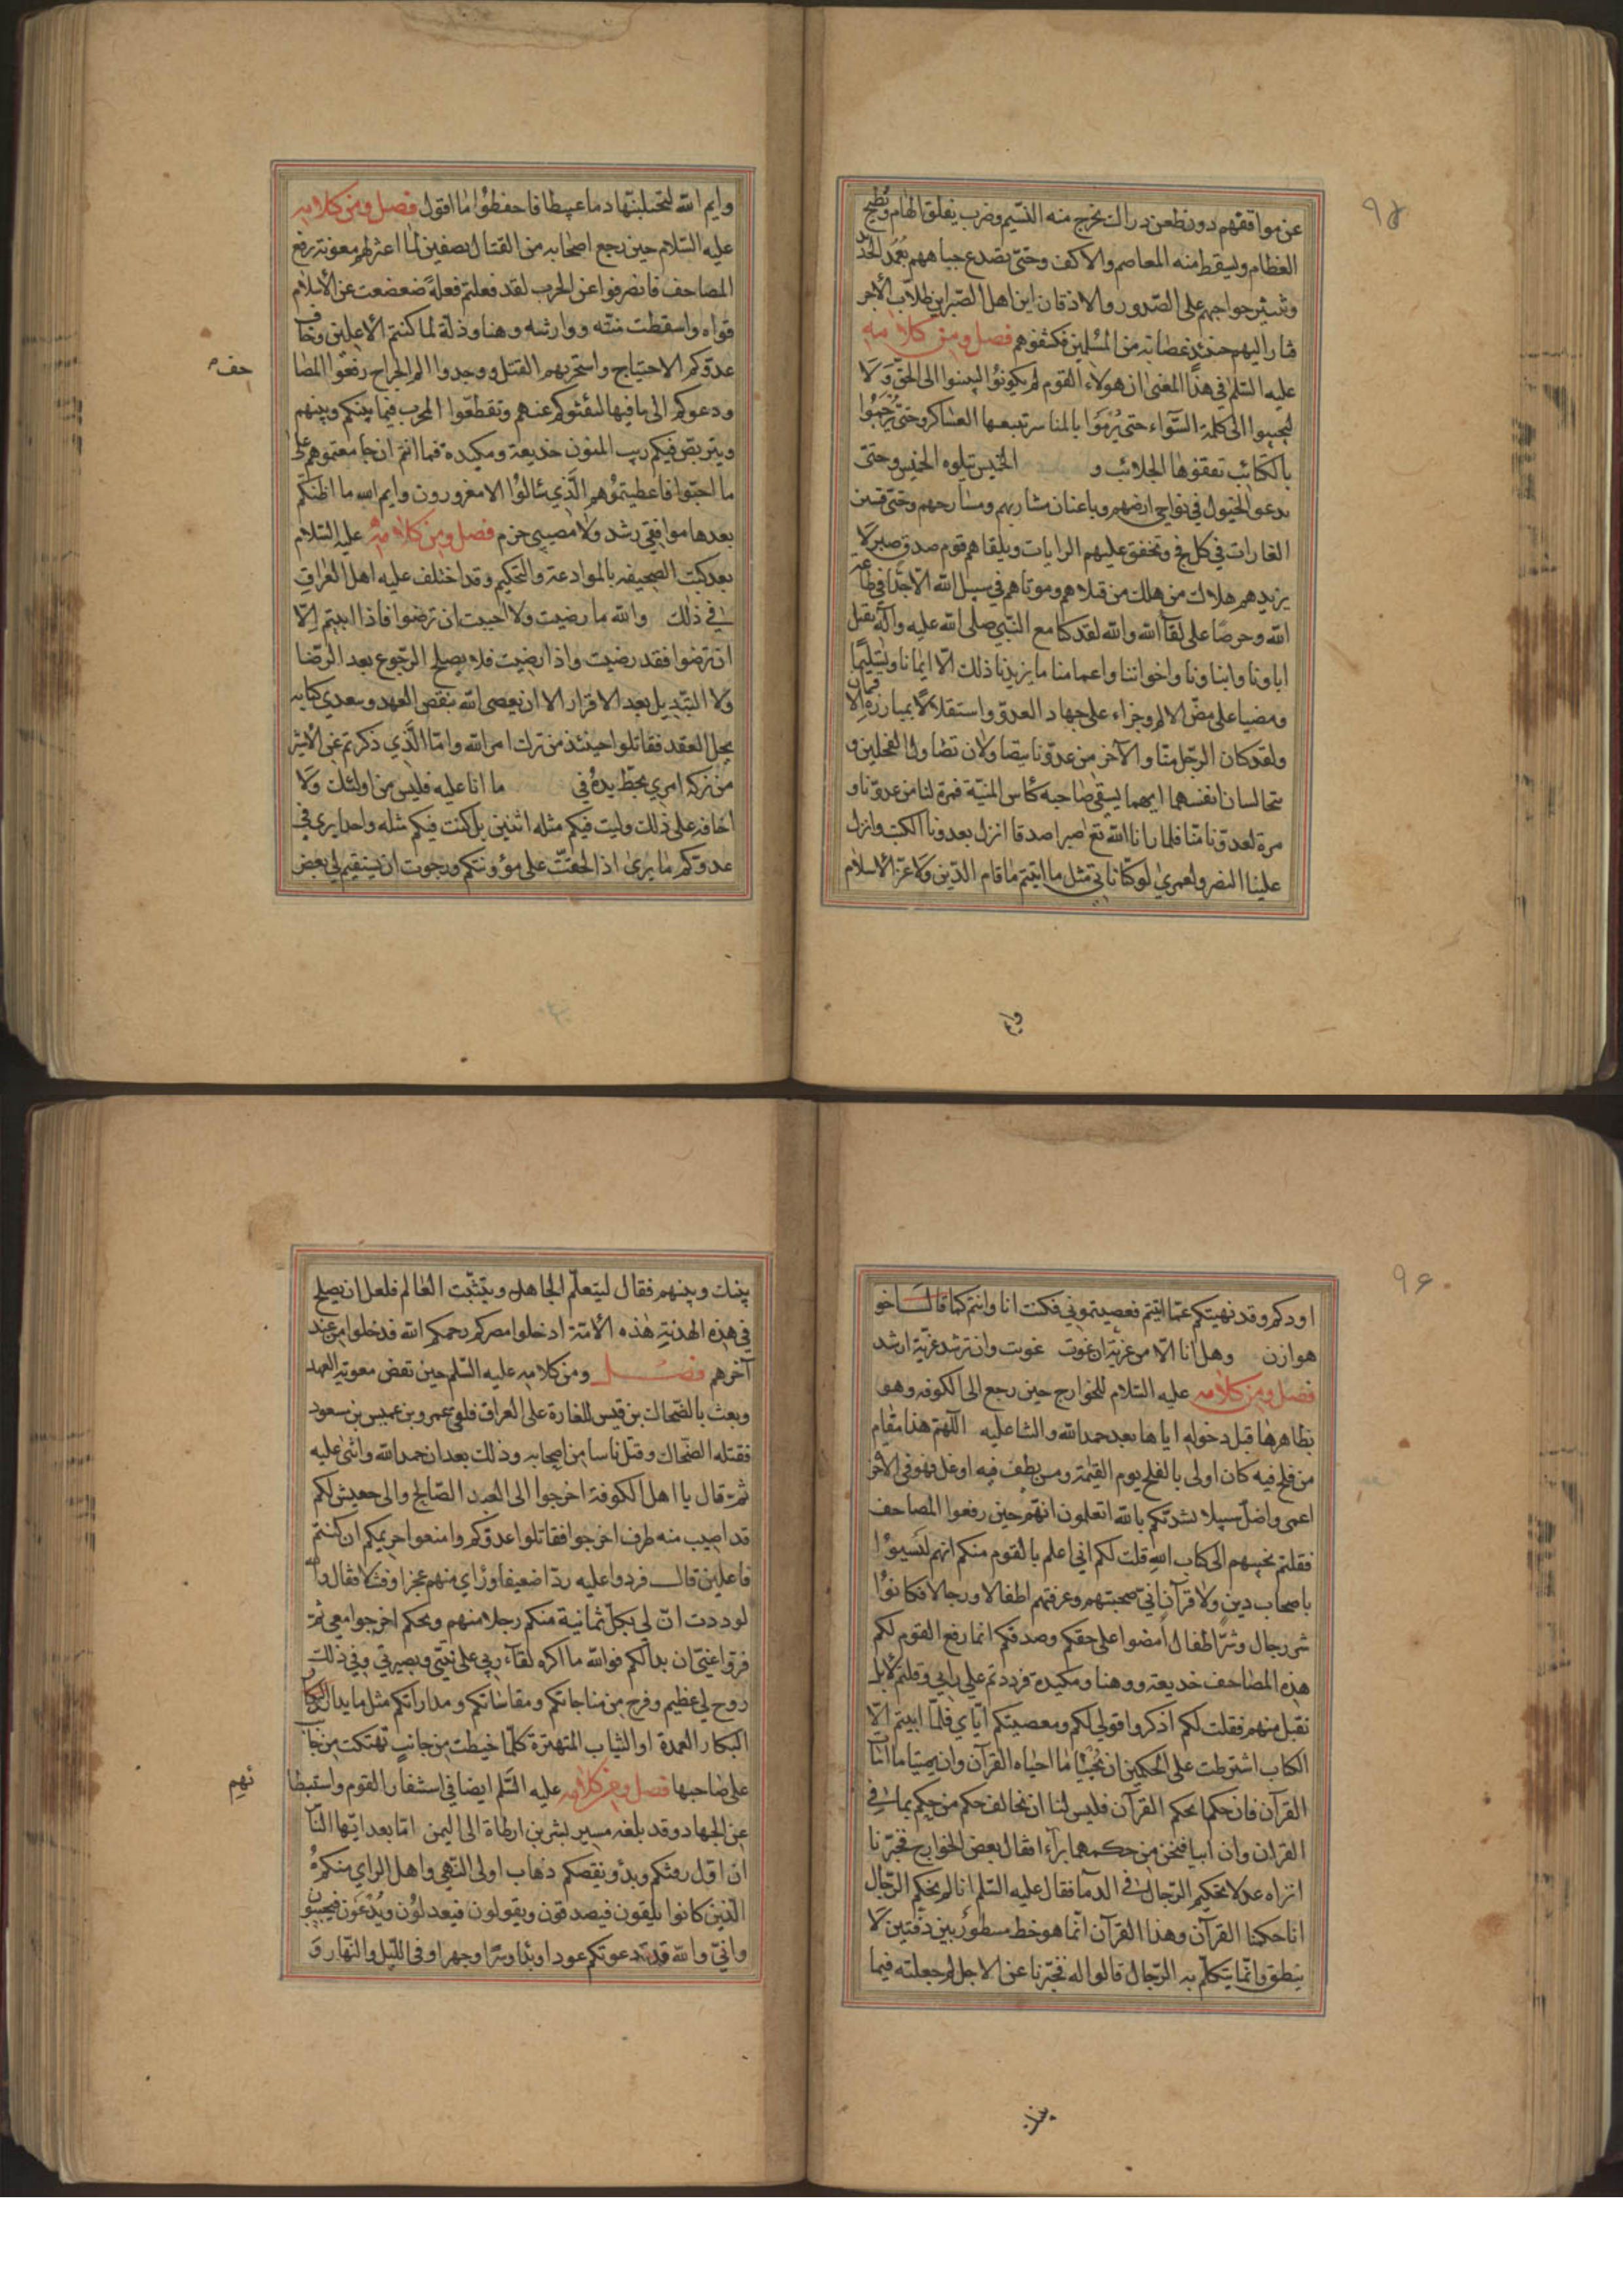 ٩٥
عن مواقفهم دون طعن دراك يخرج منه النسيم وضرب يفلق الهام ويطيح
العظام ويسقط منه المعاصم والاكف وحتى تصدع جباههم بعمد الحد
وتنثر حواجبهم على الصدور والاذقان اين اهل الصبر اين طلاب الأجر
فثار اليهم حينئذ عصابة من المسلمين فكشفوهم فصل ومن كلامه
عليه السلم في هذا المعنى ان هولاء القوم لم يكونوا لينيبوا الى الحق وَلا
ليجيبوا الى كلمة السَّواء حتى يُرْمَوا بالمناسر تتبعها العساكر وحتى يُرجموا
بالكتائب تقفوها الجلائب و الخميس يتلوه الخميس وحتى
يدعو الخيول في نواحي ارضهم وباعنان مشاربهم ومسارحهم وحتى تشن
الغارات في كل فج وتخفق عليهم الرايات ويلقاهم قوم صدق صبر لَا
يزيدهم هلاك من هلك من قتلاهم وموتاهم في سبيل الله الّا جدّا في طاعة
الله وحرصًا على لقآ الله والله لقد كنا مع النّبي صلى الله عليه وآله يقتل
اباونا وابناونا واخواننا واعمامنا ما يزيدنا ذلك الّا ايمانا وتسليمًا
ومضيا على مضّ الالم وجراء على جهاد العدوّ واستقلالًا بمبارزة الاقران
ولقد كان الرّجل منّا والآخر من عدونا يتصاولان تصاول الفحلين و
يتخالسان انفسهما ايهما يسقي صاحبه كاس المنيّة فمرة لنا من عدوّنا و
مرة لعدوّنا منّا فلما رانا الله تع صبرا صدقا انزل بعدونا الكبت وانزل
علينا النصر ولعمري لو كنّا ناتي مثل ما اتيتم ما قام الدّين وَلا عزّ الأسلام
وايم
وايم الله لتحتلبنّها دما عبيطا فاحفظوا ما اقول فصل ومن كلامه
عليه السّلام حين رجع اصحابه من القتال بصفين لما اغترهم معوية برفع
المصاحف فانصرفوا عن الحرب لقد فعلتم فعلةً ضعضعت عن الأسلام
قواه واسقطت منّته ووارثته وهنا وذلّة لما كنتم الأعلين وخاف
عدوّكم الاحتياج واستحر بهم القتل ووجدوا الم الجراح رفعوا المصا
حف
ودعوكم الى ما فيها ليفثئوكم عنهم وتقطعوا الحرب فيما بينكم وبينهم
ويتربّص فيكم ريب المنون خديعة ومكيدة فما انتم ان جامعتموهم على
ما احبّوا فاعطيتموهم الَّذي سألوا الا مغرورون وايم الله ما اظنكم
بعدها موافقي رشد ولا مصيبي حزم فصل ومن كلامه عليه السّلام
بعد كتب الصحيفه بالموادعة والتحكيم وقد اختلف عليه اهل العراق
في ذلك والله ما رضيت ولا احببت ان ترضوا فاذا ابيتم الّا
ان ترضوا فقد رضيت واذا رضيت فلا يصلح الرّجوع بعد الرّضا
ولا التّبديل بعد الاقرار الا ان يعصى الله بنقض العهد ويتعدى كتابه
بحل العقد فقاتلوا حينئذ من ترك امر الله وامّا الَّذي ذكرتم عن الأشتر
من تركه امري بخطّ يده في ما انا عليه فليس من اولئك وَلا
اخافه على ذلك وليت فيكم مثله اثنين بل كنت فيكم مثله واحدا يرى في
عدوّكم ما يرى اذا لخفّت على مؤونتكم ورجوت ان يستقيم لي بعض
٩٦
اودكم وقد نهيتكم عمّا اتيتم فعصيتموني فكنت انا وانتم كما قال اخو
هوازن وهل انا الا من غزيّة ان غوت غويت وان ترشد غزيّة ارشد
فصل ومن كلامه عليه السّلام للخوارج حين رجع الى الكوفه وهو
بظاهرها قبل دخوله اياها بعد حمد الله والثنا عليه اللّهمّ هذا مقام
من فلج فيه كان اولى بالفلج يوم القيمة ومن نطف فيه او غل فهو في الآخرة
اعمى واضلّ سبيلا نشدتكم بالله اتعلمون انهم حين رفعوا المصاحف
فقلتم نجيبهم الى كتاب الله قلت لكم اني اعلم بالقوم منكم انهم ليسوا
باصحاب دين ولا قرآن اني صحبتهم وعرفتهم اطفالا ورجالا فكانوا
شر رجال وشرّ اطفال امضوا على حقكم وصدقكم انما رفع القوم لكم
هذه المصاحف خديعة ووهنا ومكيدة فرددتم علي رايي وقلتم لا بل
نقبل منهم فقلت لكم اذكروا قولي لكم ومعصيتكم ايّاي فلمّا ابيتم الّا
الكتاب اشترطت على الحكمين ان يُحييا ما احياه القرآن وان يميتا ما امات
القرآن فان حكما بحكم القرآن فليس لنا ان نخالف حكم من حكم بما في
القران وان ابيا فنحن من حكمهما برآء فقال بعض الخوارج فخبّرنا
اتراه عدلا تحكيم الرّجال في الدّمآ فقال عليه السّلم انا لم نحكم الرّجال
انا حكمنا القرآن وهذا القرآن انّما هو خط مسطور بين دفتين لَا
ينطق وانّما يتكلّم به الرّجال قالوا له فخبّرنا عن الاجل لم جعلته فيما
بينك
بينك وبينهم فقال ليتعلّم الجاهل ويتثبّت العالم فلعل ان يصلح
في هذه الهدنة هذه الأمّة ادخلوا مصركم رحمكم الله فدخلوا من عند
آخرهم فصل ومن كلامه عليه السّلم حين نقض معوية العهد
وبعث بالضّحاك بن قيس للغارة على العراق فلقي عمرو بن عميس بن مسعود
فقتله الضّحاك وقتل ناسا من اصحابه وذلك بعد ان حمد الله واثنى عليه
ثمّ قال يا اهل الكوفة اخرجوا الى العبد الصّالح والى جيش لكم
قد اصيب منه طرف اخرجوا فقاتلوا عدوّكم وامنعوا حريمكم ان كنتم
فاعلين قال فردوا عليه ردّا ضعيفا وراى منهم عجزا وفشلا فقال والله
لوددت انّ لي بكل ثمانية منكم رجلا منهم ويحكم اخرجوا معي ثمّ
فرّوا عنّي ان بدا لكم فوالله ما اكره لقآء ربي على نيّتي وبصيرتي وفي ذلك
روح لي عظيم وفرج من مناجاتكم ومقاساتكم ومداراتكم مثل ما يدارى
البكار العمدة او الثياب المتهترة كلّما خيطت من جانب تهتكت من جانب
على صاحبها فصل ومن كلامه عليه السّلم ايضا في استنفار القوم واستبطا
ئهم
عن الجهاد وقد بلغه مسير بشر بن ارطاة الى اليمن امّا بعد ايّها النّاس
ان اوّل رفثكم وبدؤ نقصكم ذهاب اولى النّهى واهل الراي منكم
الّذين كانوا يلقون فيصدقون ويقولون فيعدلون ويُدْعَون فيجيبون
وانيّ والله قد دعوتكم عودا وبدا وسرا وجهرا وفي اللّيل والنّهار وَ